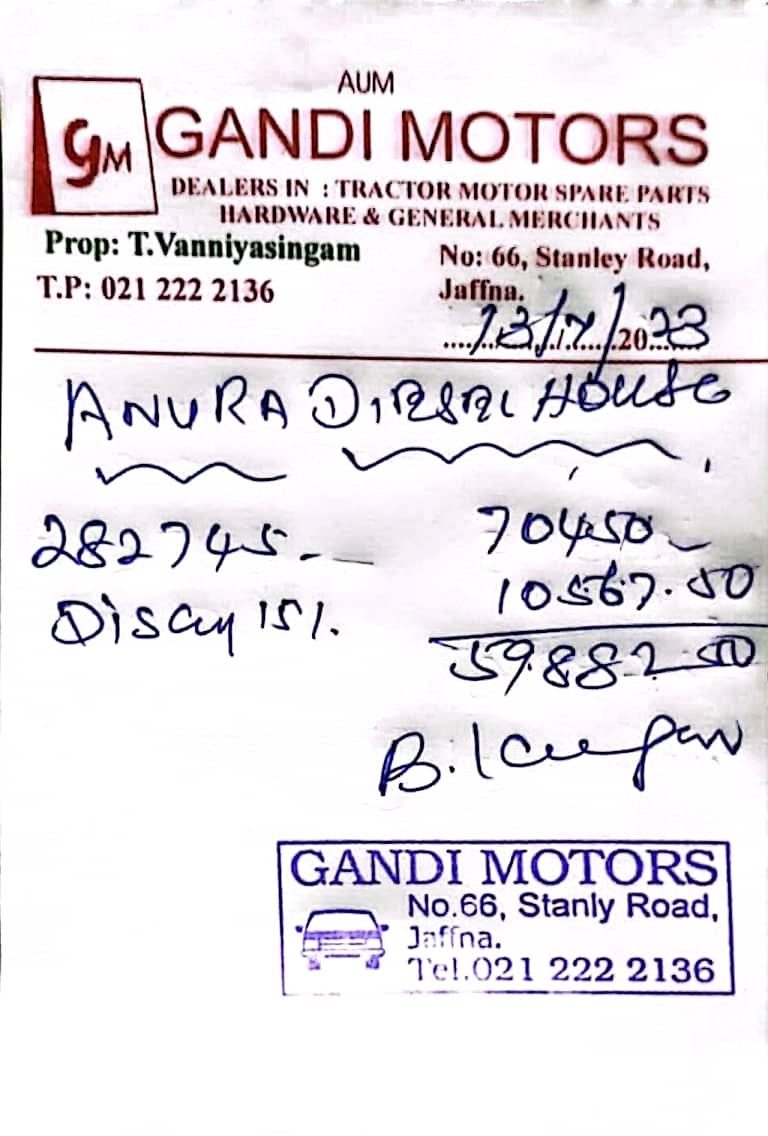 AUM
GM GANDI MOTORS
DEALERS IN : TRACTOR MOTOR SPARE PARTS
HARDWARE & GENERAL MERCHANTS
Prop: T.Vanniyasingam
T.P: 021 222 2136
No: 66, Stanley Road,
Jaffna.
13/7/2023
ANURA DIESEL HOUSE
282745 - 70450
Discun 15%. 10567.50
59882 50
GANDI MOTORS
No.66, Stanly Road,
Jaffna.
Tel.021 222 2136